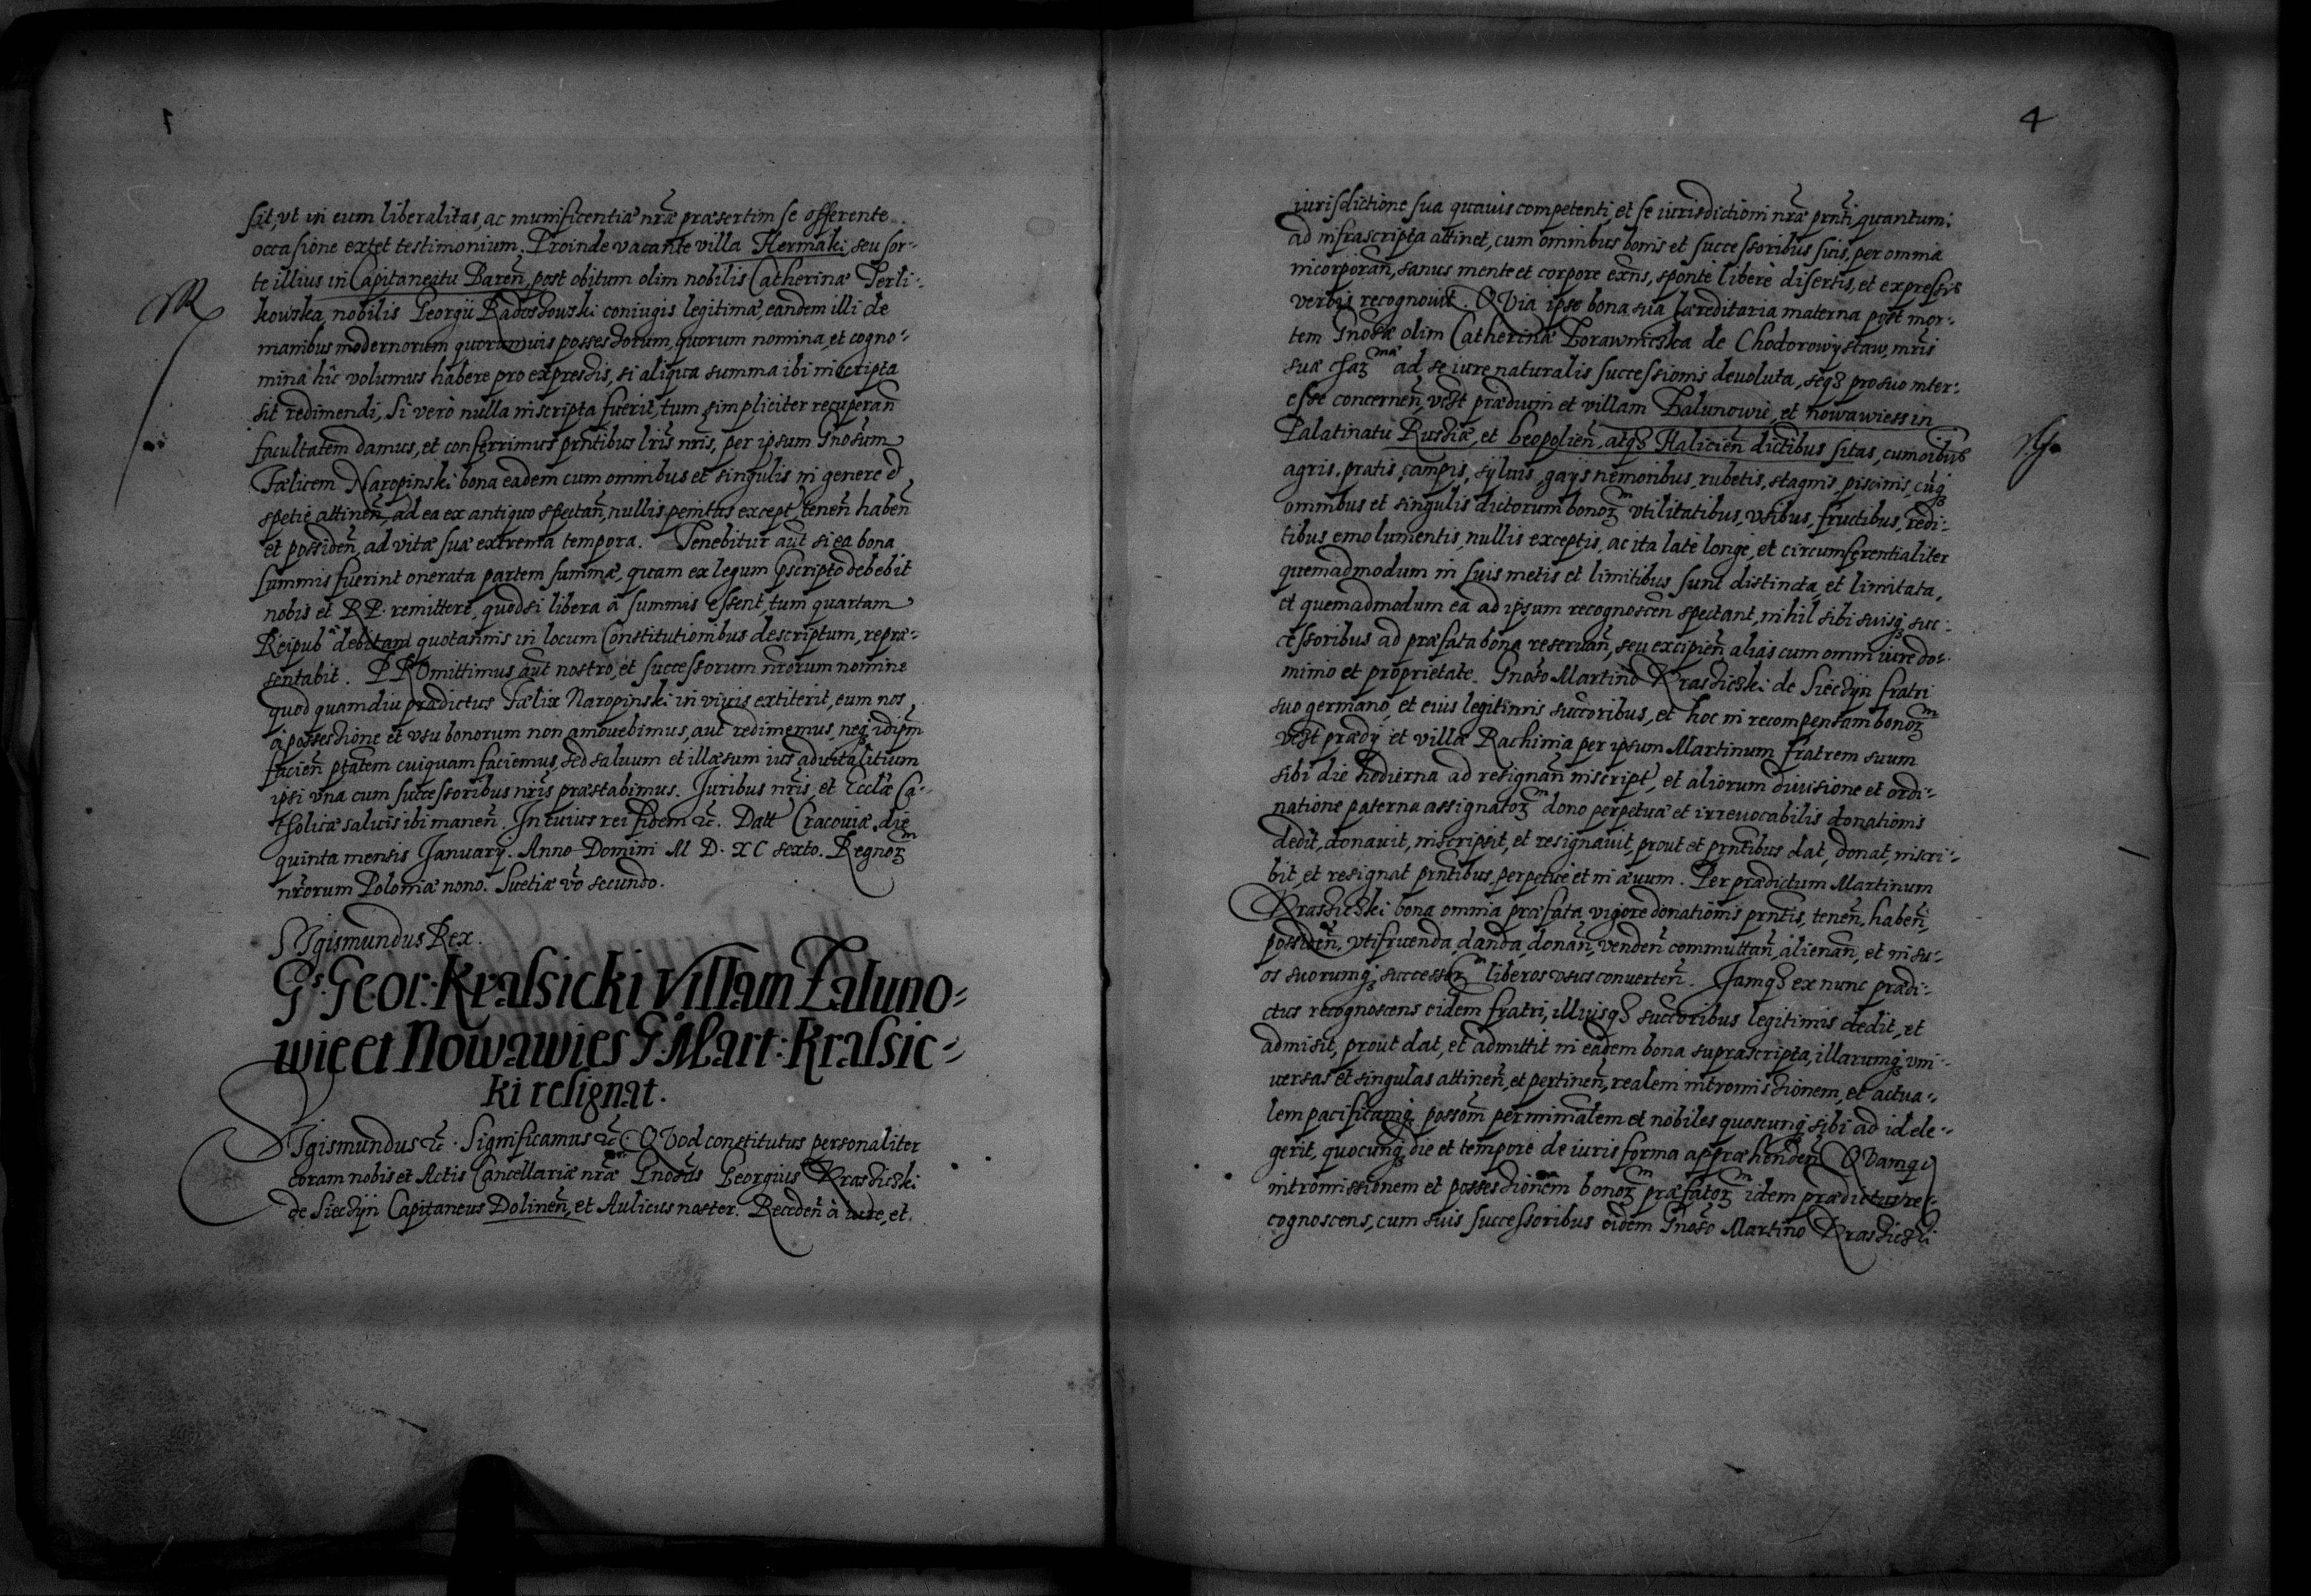 1
sit, vt in eum liberalitas, ac munificentiæ nr̃æ præsertim se offerente
occasione extet testimonium. Proinde vacante villa Hermaki, seu sor-
te illius in Capitaneatu Bareñ, post obitum olim nobilis Catherinæ Terli-
kowska, nobilis Georgii Radoszowski coniugis legitimæ, eandem illi de
manibus modernorum quorumuis possessorum, quorum nomina, et cogno-
mina hîc volumus habere pro expressis, si aliqua summa ibi inscripta
sit redimendi, Si verò nulla inscripta fuerit, tum simpliciter recuperañ
facultatem damus, et conferrimus prñtibus lr̃is nr̃is, per ipsum Gnosum
Fælicem Naropinski bona eadem cum omnibus et singulis in genere et
spetie attineñ, ad ea ex antiquo spectañ, nullis penitus except teneñ habeñ
et possideñ, ad vitæ suæ extrema tempora. Tenebitur aut̃ si ea bona
summis fuerint onerata partem summæ, quam ex legum pscripto debebit
nobis et RP. remittere, quodsi libera â summis essent, tum quartam
Reipub debitam quotannis in locum Constitutionibus descriptum, repræ-
sentabit. PROmittimus aut̃ nostro, et successorum nr̃orum nomine
quod quamdiu prædictus Fælix Naropinski in viuis extiterit, eum nos
â possessione et vsu bonorum non amouebimus, aut redimemus, neq3 idipm̃
facieñ ptãtem cuiquam faciemus, sed saluum et illæsum ius aduitalitium
ipsi vna cum successoribus nr̃is præstabimus. Juribus nr̃is, et Eccl̃æ Ca-
tholicæ saluis ibi maneñ. In cuius rei fidem &c. Datt Cracouiæ die
quinta mensis January. Anno Domini M D. XC sexto. Regnoꝝ
nr̃orum Poloniæ nono. Suetiæ vo secundo.
SIgismundus Rex.
Gs: Geor: Krassicki Villam Zaluno-
wie et Nowawies G: Mart: Krassic-
ki resignat.
SIgismundus &c. Significamus &c. QVod constitutus personaliter
coram nobis et Actis Cancellariæ nr̃æ Gnosus Georgius Krasiczki
de Siecijn Capitaneus Dolineñ, et Aulicus noster. Recedeñ à iure, et
4
iurisdictione sua quauis competenti, et se iurisdictioni nr̃æ prñti, quantum
ad infrascripta attinet, cum omnibus bonis et successoribus suis, per omnia
incorporañ, sanus mente et corpore exñs, sponte libere disertis, et expressis
verbis recognouit. QVia ipse bona sua hæreditaria materna post mor-
tem Gnosæ olim Catherinæ Borawnicska de Chodorowystaw, mr̃is
suæ ad se iure naturalis successionis deuoluta, seq3 pro suo inter-
esse concerneñ, vest prædium et villam Zalunowie, et nowawiess in
Palatinatu Russiæ, et Leopolieñ, atq3 Halicieñ dictibus sitas, cum oibus
agris, pratis, campis, syluis, gays nemoribus, rubetis, stagnis, piscinis, cuq3
omnibus et singulis dictorum bonoꝝ vtilitatibus, vsibus, fructibus, redi-
tibus emolumentis, nullis exceptis, ac ita late longe, et circumferentialiter
quemadmodum in suis metis et limitibus sunt distincta, et limitata,
et quemadmodum ea ad ipsum recognosceñ spectant, nihil sibi suisq3 suc-
cessoribus ad præfata bona reseruañ, seu excipieñ alias cum omni iure do-
minio et proprietate. Gnoso Martino Krasiczki de Siecijn fratri
suo germano, et eius legitimis succoribus, et hoc in recompensam bonoꝝ
vest prædy et villæ Rachinia per ipsum Martinum fratrem suum
sibi die hodierna ad resignañ inscript, et aliorum diuisione et ordi-
natione paterna assignatoꝝ dono perpetuæ et irreuocabilis donationis
dedit, donauit, inscripsit, et resignauit, prout et prñtibus dat, donat, inscri-
bit, et resignat prñtibus, perpetue et in æuum. Per prædictum Martinum
Krasiczki bona omnia præfata vigore donationis prñtis, teneñ, habeñ,
possideñ, vtifruenda, danda, donañ, vendeñ commuttañ, alienañ, et in su-
os suorumq3 successoꝝ liberos vsus conuerteñ. Jamq3 ex nunc prædi-
ctus recognoscens eidem fratri, illiusq3 succoribus legitimis dedit, et
admisit, prout dat, et admittit in eadem bona suprascripta, illarumq3 vni-
uersas et singulas attineñ, et pertineñ, realem intromissionem, et actua-
lem pacificamq3 possom̃ per ministerialem et nobiles quoscunq3 sibi ad id ele-
gerit, quocunq3 die et tempore de iuris forma appræhendeñ QVamqi
intromissionem et possessionem bonoꝝ præfatoꝝ idem prædictus re-
cognoscens, cum suis successoribus eidem Gnoso Martino Krasiczki